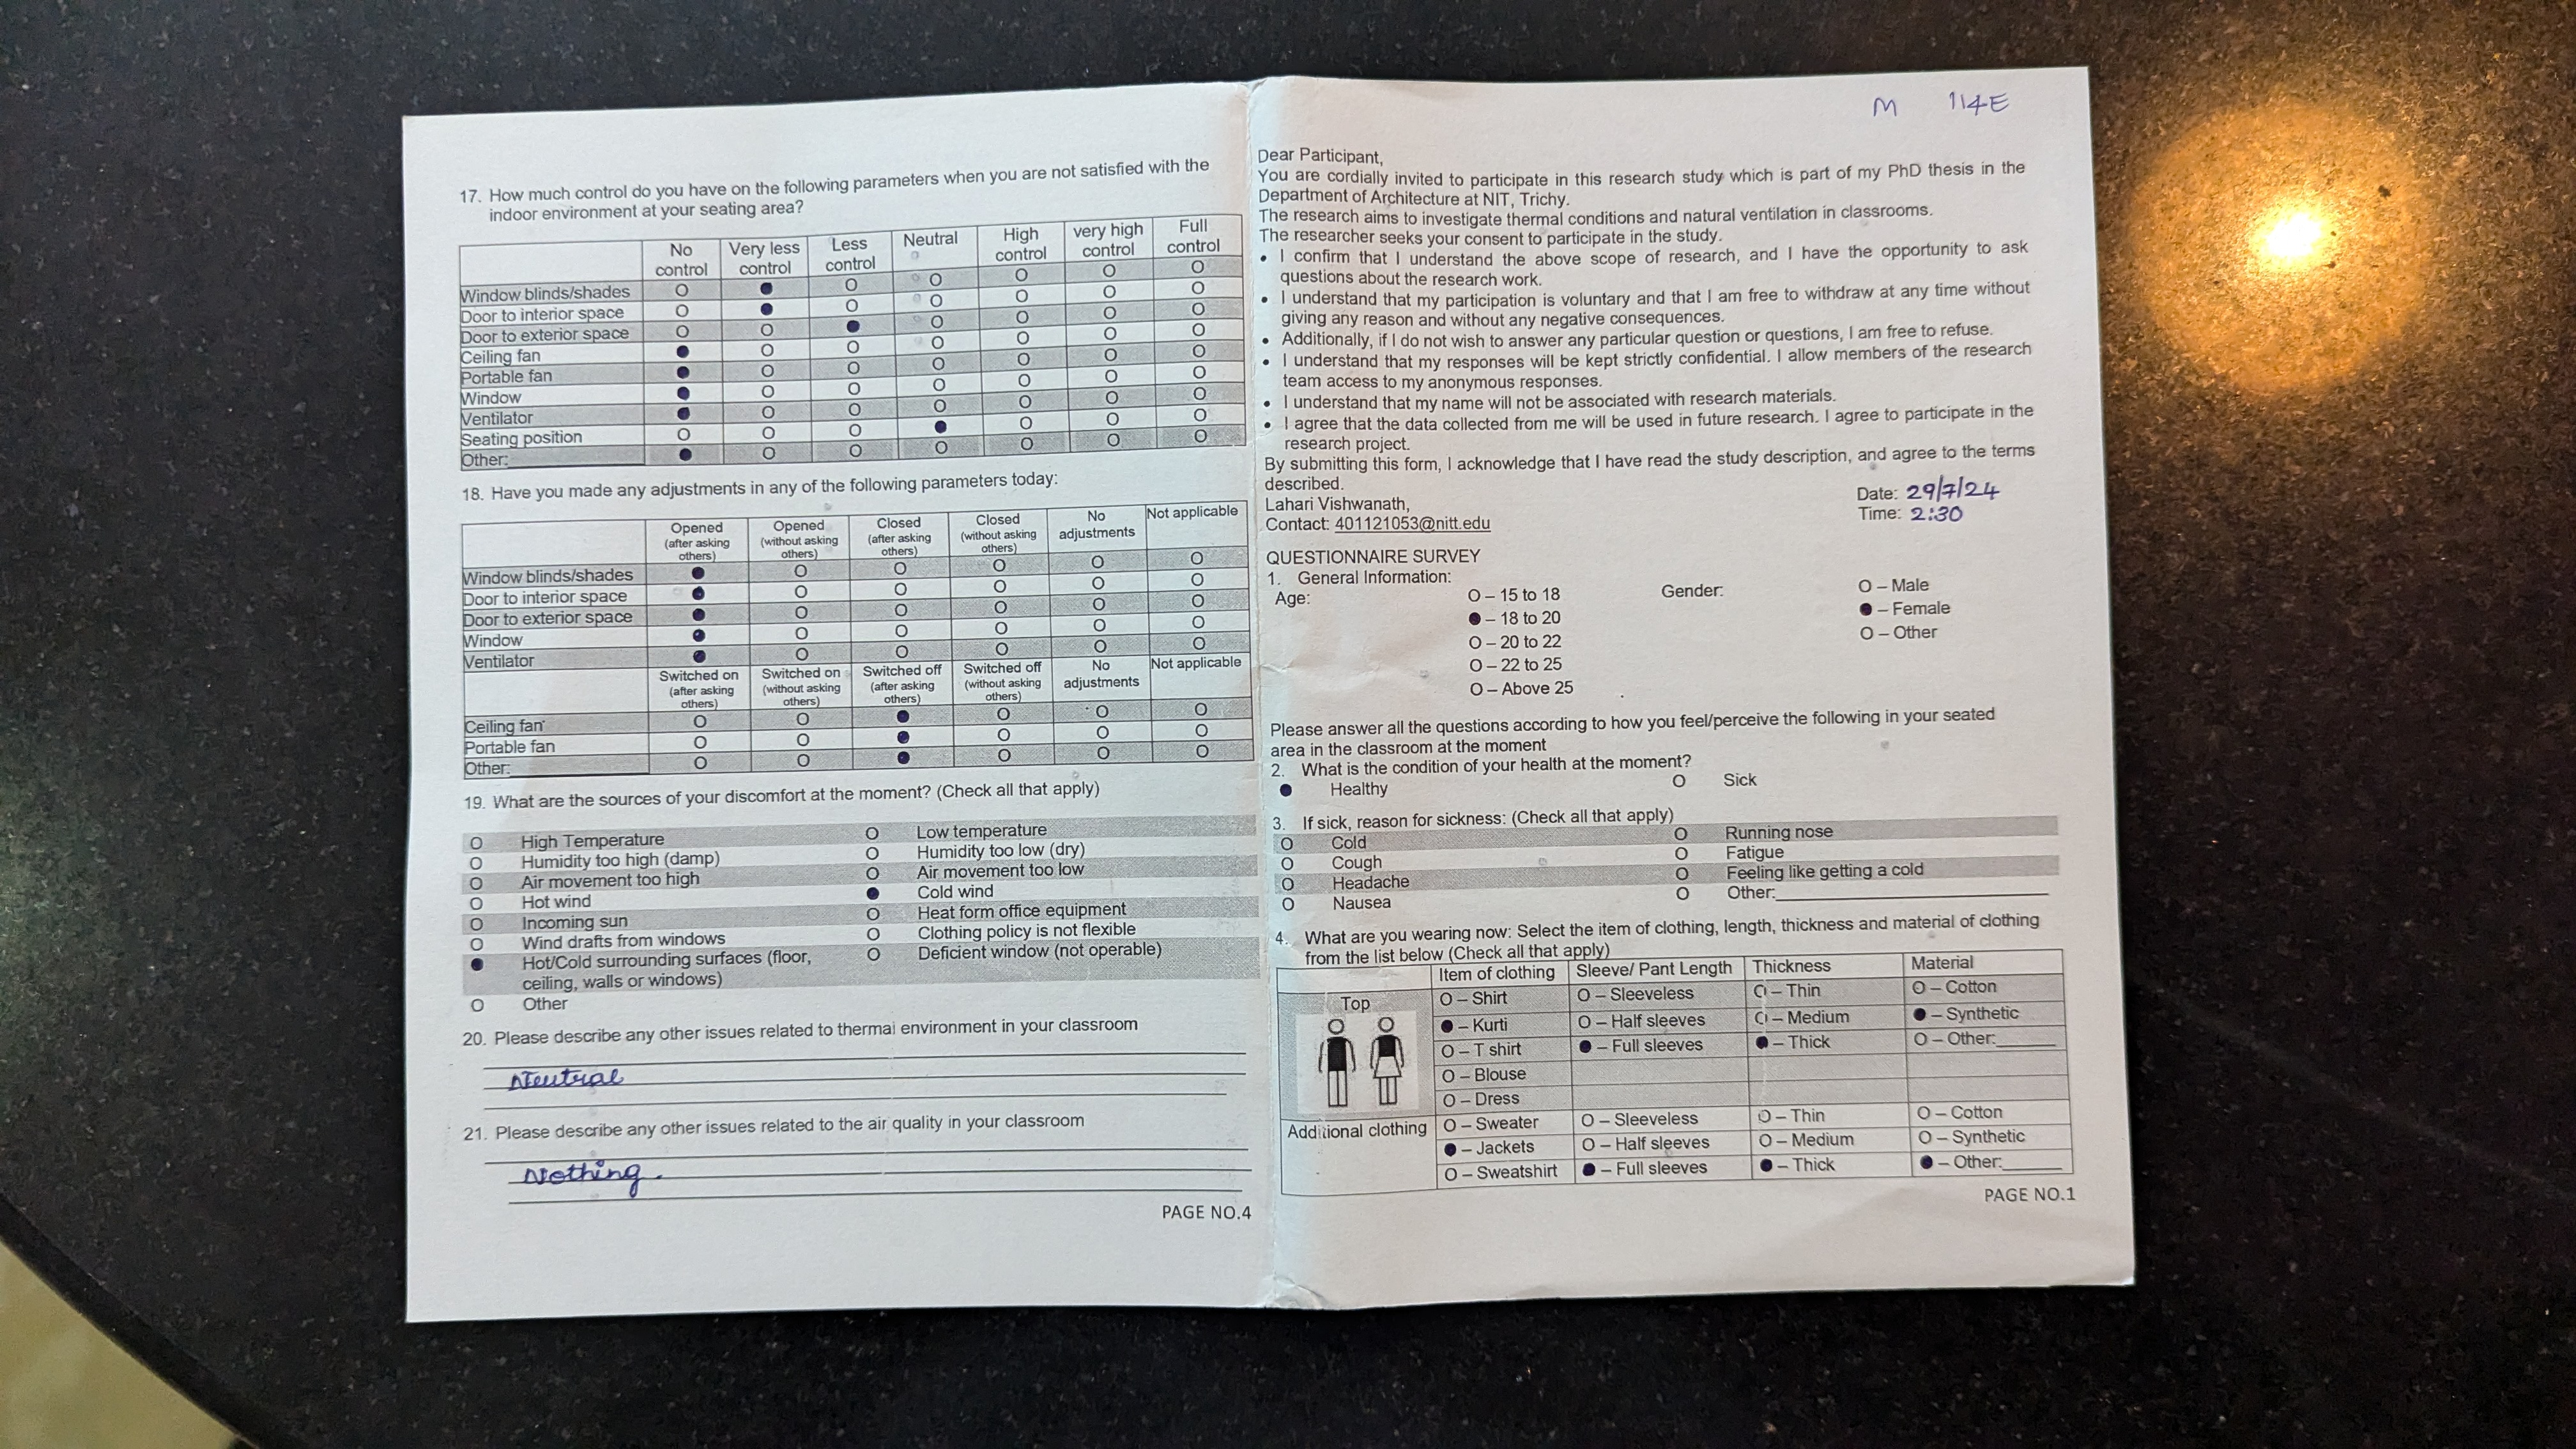 17. How much control do you have on the following parameters when you are not satisfied with the
indoor environment at your seating area?
No control Very less control Less control Neutral High control very high control Full control
Window blinds/shades O ● O O O O O
Door to interior space O ● O O O O O
Door to exterior space O O ● O O O O
Ceiling fan ● O O O O O O
Portable fan ● O O O O O O
Window ● O O O O O O
Ventilator ● O O O O O O
Seating position O O O ● O O O
Other: ● O O O O O O
18. Have you made any adjustments in any of the following parameters today:
Opened (after asking others) Opened (without asking others) Closed (after asking others) Closed (without asking others) No adjustments Not applicable
Window blinds/shades ● O O O O O
Door to interior space ● O O O O O
Door to exterior space ● O O O O O
Window ● O O O O O
Ventilator ● O O O O O
Switched on (after asking others) Switched on (without asking others) Switched off (after asking others) Switched off (without asking others) No adjustments Not applicable
Ceiling fan O O ● O O O
Portable fan O O ● O O O
Other: O O ● O O O
19. What are the sources of your discomfort at the moment? (Check all that apply)
O High Temperature O Low temperature
O Humidity too high (damp) O Humidity too low (dry)
O Air movement too high O Air movement too low
O Hot wind ● Cold wind
O Incoming sun O Heat form office equipment
O Wind drafts from windows O Clothing policy is not flexible
● Hot/Cold surrounding surfaces (floor, O Deficient window (not operable)
ceiling, walls or windows)
O Other
20. Please describe any other issues related to thermal environment in your classroom
Neutral
21. Please describe any other issues related to the air quality in your classroom
Nothing.
PAGE NO.4
M 114E
Dear Participant,
You are cordially invited to participate in this research study which is part of my PhD thesis in the
Department of Architecture at NIT, Trichy.
The research aims to investigate thermal conditions and natural ventilation in classrooms.
The researcher seeks your consent to participate in the study.
• I confirm that I understand the above scope of research, and I have the opportunity to ask
questions about the research work.
• I understand that my participation is voluntary and that I am free to withdraw at any time without
giving any reason and without any negative consequences.
• Additionally, if I do not wish to answer any particular question or questions, I am free to refuse.
• I understand that my responses will be kept strictly confidential. I allow members of the research
team access to my anonymous responses.
• I understand that my name will not be associated with research materials.
• I agree that the data collected from me will be used in future research. I agree to participate in the
research project.
By submitting this form, I acknowledge that I have read the study description, and agree to the terms
described.
Lahari Vishwanath,
Contact: 401121053@nitt.edu
Date: 29/7/24
Time: 2:30
QUESTIONNAIRE SURVEY
1. General Information:
Age: O – 15 to 18 Gender: O – Male
● – 18 to 20 ● – Female
O – 20 to 22 O – Other
O – 22 to 25
O – Above 25
Please answer all the questions according to how you feel/perceive the following in your seated
area in the classroom at the moment
2. What is the condition of your health at the moment?
● Healthy O Sick
3. If sick, reason for sickness: (Check all that apply)
O Cold O Running nose
O Cough O Fatigue
O Headache O Feeling like getting a cold
O Nausea O Other:
4. What are you wearing now: Select the item of clothing, length, thickness and material of clothing
from the list below (Check all that apply)
Item of clothing Sleeve/ Pant Length Thickness Material
Top O – Shirt O – Sleeveless O – Thin O – Cotton
● – Kurti O – Half sleeves O – Medium ● – Synthetic
O – T shirt ● – Full sleeves ● – Thick O – Other:
O – Blouse
O – Dress
Additional clothing O – Sweater O – Sleeveless O – Thin O – Cotton
● – Jackets O – Half sleeves O – Medium O – Synthetic
O – Sweatshirt ● – Full sleeves ● – Thick ● – Other:
PAGE NO.1